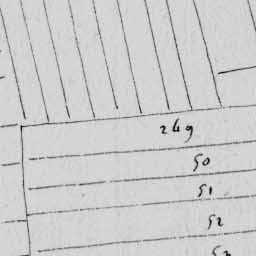 249
50
51
52